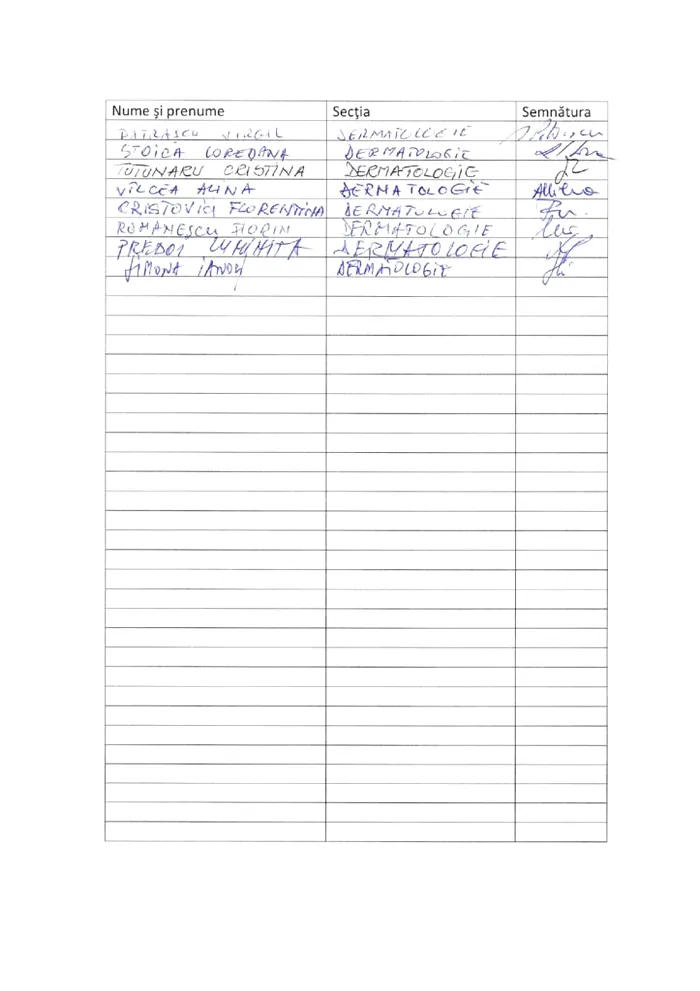 Nume și prenume Secția Semnătura
PATRASCU VIRGIL DERMATOLOGIE
STOICA LOREDANA DERMATOLOGIE
TUTUNARU CRISTINA DERMATOLOGIE
VÎLCEA ALINA DERMATOLOGIE
CRISTOVICI FLORENTINA DERMATOLOGIE
ROMANESCU FLORIN DERMATOLOGIE
PREDOI LUMINITA DERMATOLOGIE
SIMONA IANOȘI DERMATOLOGIE